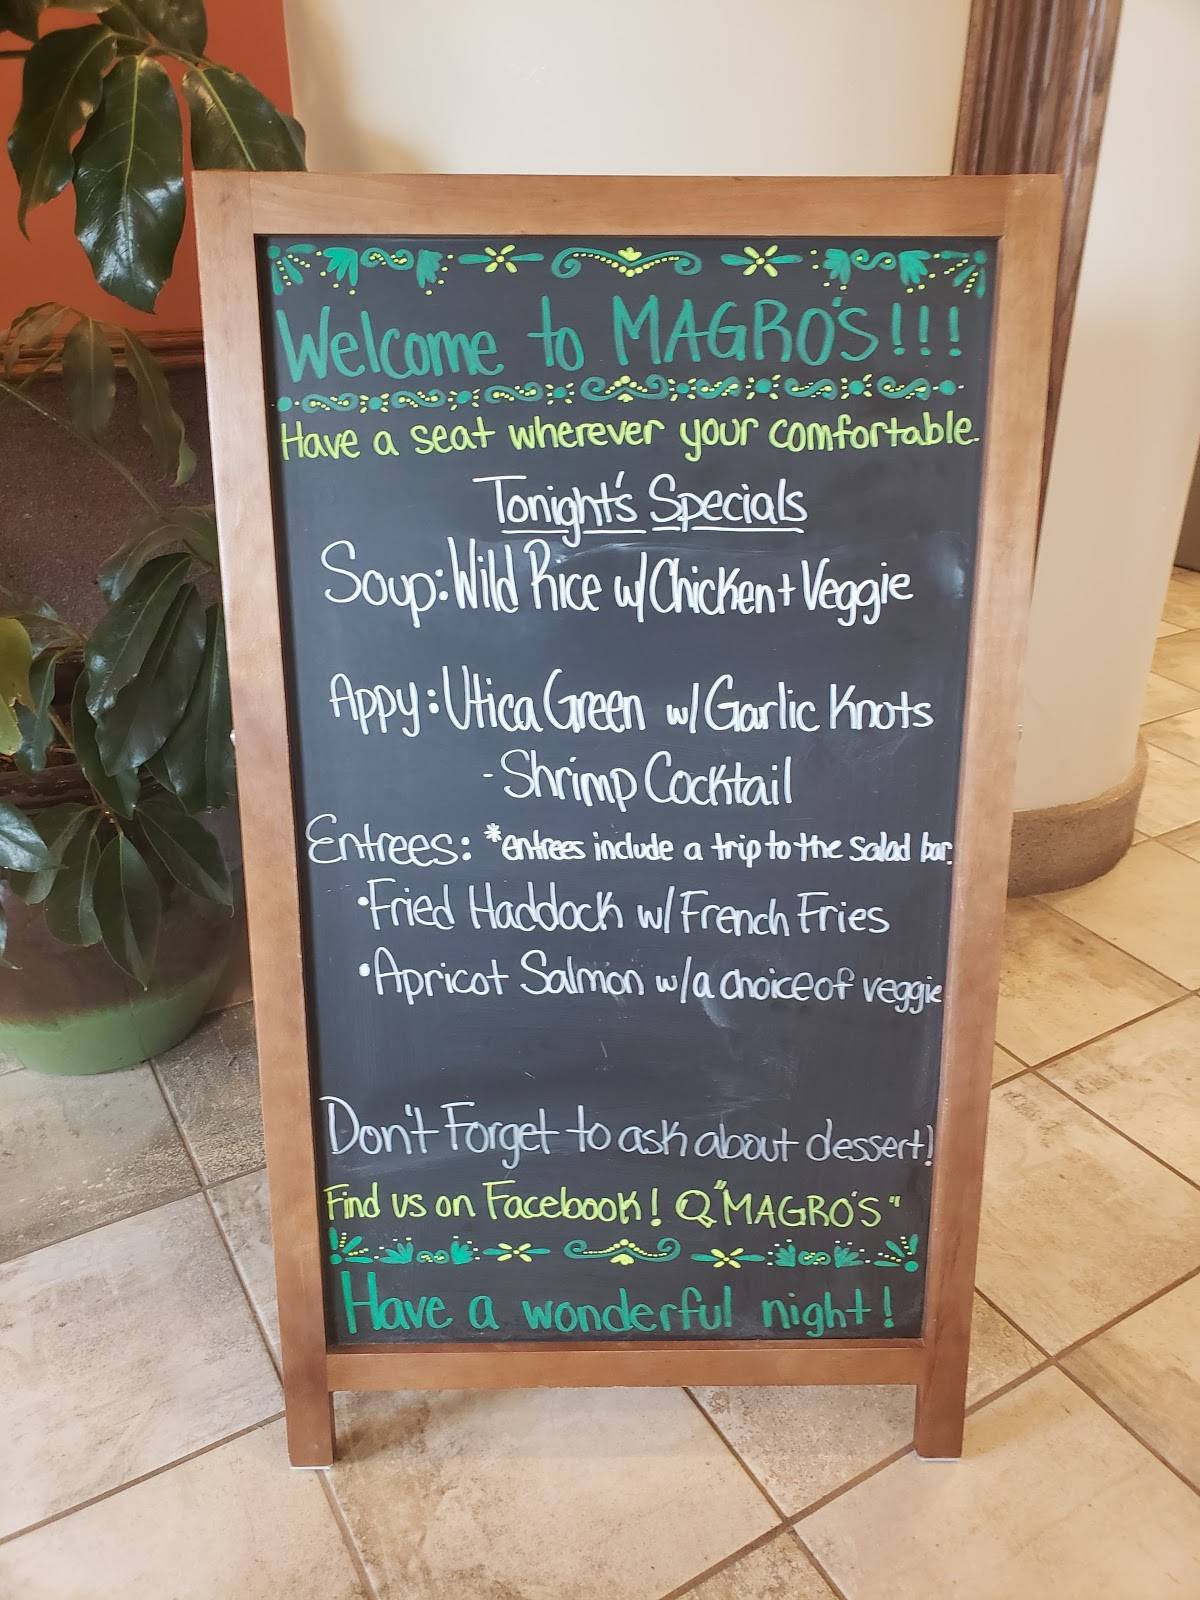 Welcome to MAGRO'S!!!
Have a seat wherever your comfortable.
Tonight's Specials
Soup: Wild Rice w/ Chicken + Veggie
Appy: Utica Green w/ Garlic Knots
- Shrimp Cocktail
Entrees: *entrees include a trip to the salad bar.
•Fried Haddock w/ French Fries
•Apricot Salmon w/a choice of veggie
Don't Forget to ask about dessert!
Find us on Facebook! Q "MAGRO'S"
Have a wonderful night!